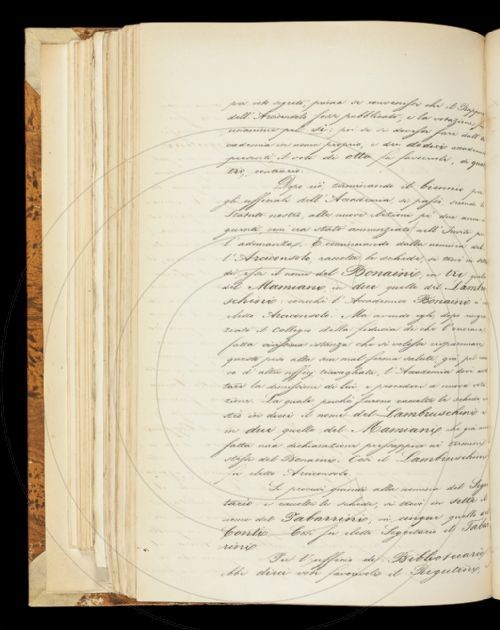 per voti segreti, prima se convenisse che il Rapporto
dell'Arciconsolo fosse pubblicato, e la votazione fu
unanime pel si; poi se si dovesse fare dall'Ac
cademia in nome proprio, e dei dodici accademici
presenti il voto di otto fu favorevole, di quat
tro, contrario.
Dopo ciò, terminando il biennio per
gli uffiziali dell'Accademia, si passò, secondo lo
Statuto nostro, alle nuove elezioni
com'era stato annunziato nell'Invito per
l'adunanza. E cominciando dalla nomina del
l'Arciconsolo, raccolte le schede, si trovò in
di esse il nome del Bonaini, in tre quello
del Mamiani, in due quello del Lambru
schini; sicchè l'Accademico Bonaini
eletto Arciconsolo. Ma avendo egli, dopo ringra
ziato il Collegio della fiducia di che l'onorava
fatta istanza che si volesse risparmiare
questo peso alla sua mal ferma salute, già
da d'altri uffizj travagliata, l'Accademia dovè accet
tare la di lui, e procedere a nuova ele
zione. La quale furono raccolte le schede
in dieci il nome del Lambruschini e
in due quello del Mamiani che già aveva
fatta una dichiarazione ne' termini
stessi del Bonaini. Così il Lambruschini
fu eletto Arciconsolo.
Si procedè quindi alla nomina del Segre
tario e raccolte le schede, si trovò in sette il
nome del Tabarrini, in cinque quello del
Conti. Così fu eletto Segretario il Tabar
rini.
Per l'ufficio di Bibliotecario
ebbe dieci voti favorevoli il Rigutini,